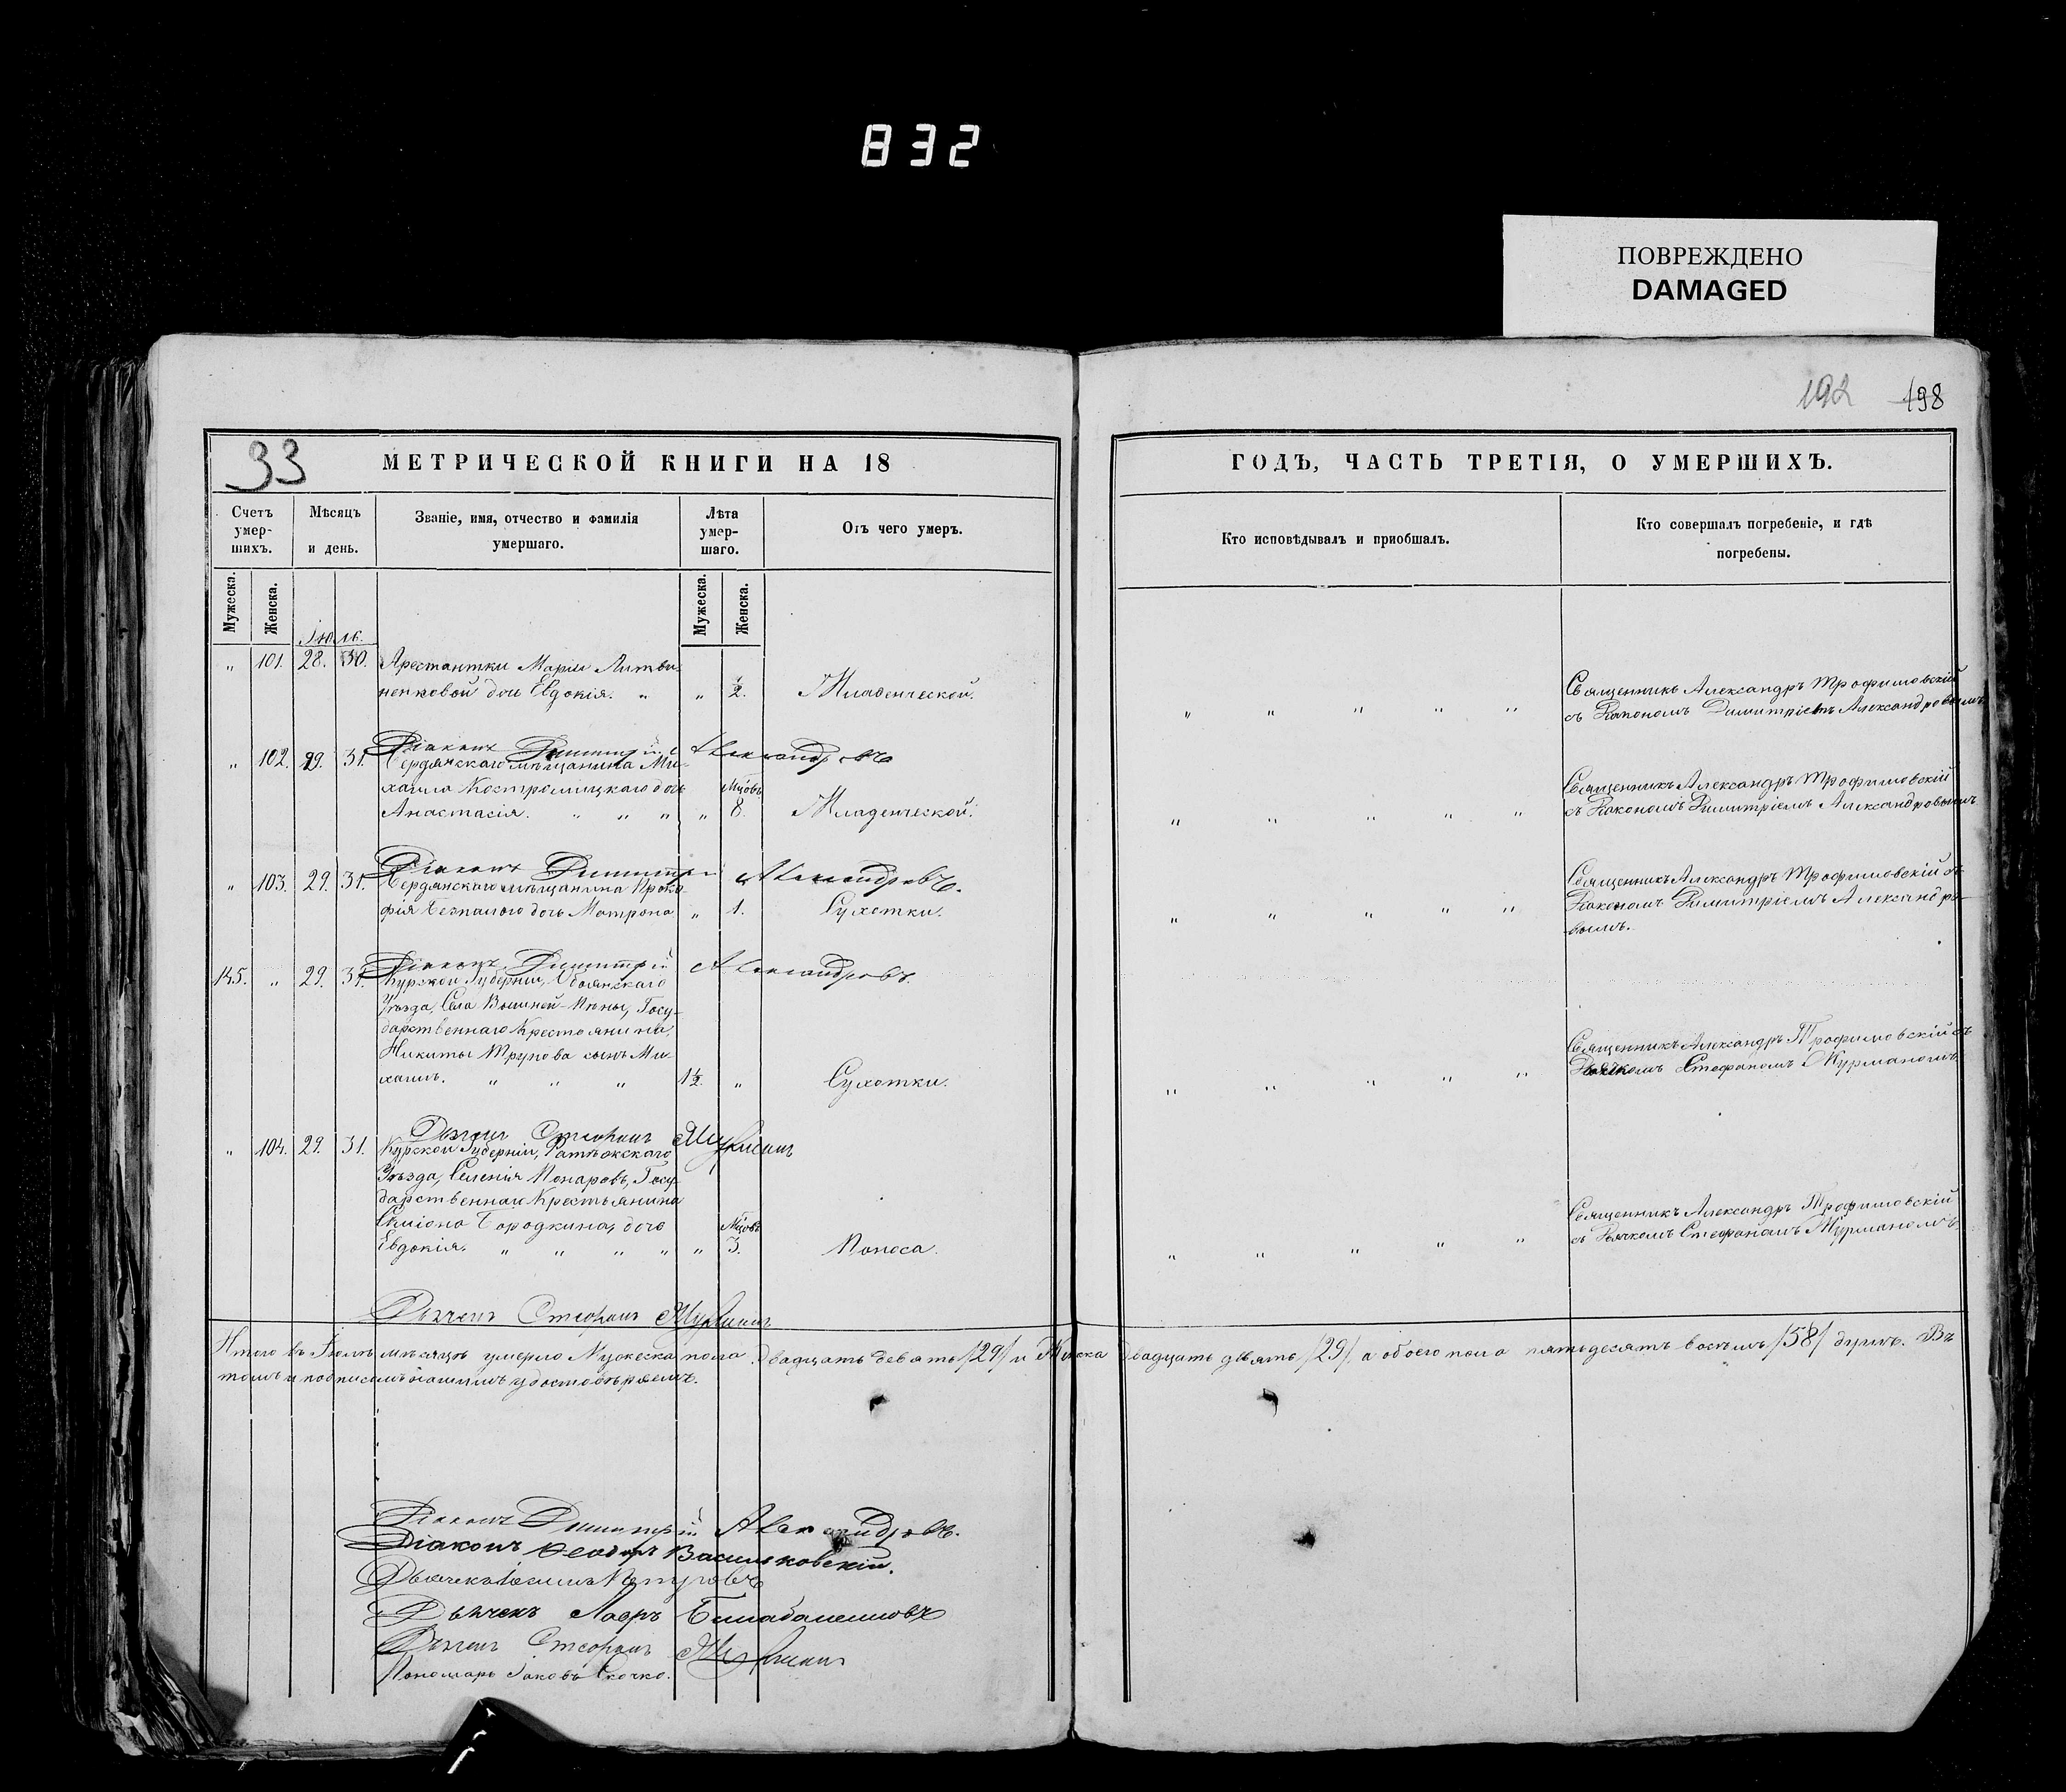 832
ПОВРЕЖДЕНО
DAMAGED
192 198
33
МЕТРИЧЕСКОЙ КНИГИ НА 18
ГОДЪ, ЧАСТЬ ТРЕТІЯ, О УМЕРШИХЪ.
Счетъ умер-шихъ.
Мѣсяцъ и день.
Званіе, имя, отчество и фамилія умершаго.
Лѣта умер-шаго.
Отъ чего умеръ.
Кто исповѣдывалъ и приобшалъ.
Кто совершалъ погребеніе, и гдѣ погребены.
Мужеска. Женска.
Мужеска. Женска.
Іюль.
„ 101. 28. 30. Арестантки Маріи Литви-
ненковой дочь Евдокія. „ „ ½. Младенческой. „ „ „ „ „
Священникъ Александръ Трофимовскій
съ Діакономъ Димитріемъ Александровымъ
Діаконъ Димитрій Александровъ
„ 102. 29. 31. Бердянскаго мѣщанина Ми-
хаила Костромицкаго дочь Мцовъ
Анастасія. „ „ „ „ 8. Младенческой. „ „ „ „ „
Священникъ Александръ Трофимовскій
съ Діакономъ Димитріемъ Александровымъ
Діаконъ Димитрій Александровъ.
„ 103. 29. 31. Бердянскаго мѣщанина Проко-
фія дочь Матрона „ 1. Сухотки. „ „ „ „ „
Священникъ Александръ Трофимовскій съ
Діакономъ Димитріемъ Александро-
вымъ.
Діаконъ Димитрій Александровъ.
145. „ 29. 31. Курской Губерніи, Обоянскаго
Уѣзда, Села Пѣны, Госу-
дарственнаго Крестьянина,
Никиты Трунова сынъ Ми-
хаилъ. „ „ „ 1½. „ Сухотки. „ „ „ „ „
Священникъ Александръ Трофимовскій съ
Дьячкомъ Стефаномъ
Дьячекъ Стефанъ
„ 104. 29. 31. Курской Губерніи,
Уѣзда, Селенія Госу-
дарственнаго Крестьянина
Симіона Бородкина, дочь Мцовъ
Евдокія. „ „ „ „ „ 3. Поноса. „ „ „ „ „
Священникъ Александръ Трофимовскій
съ Дьячкомъ Стефаномъ
Дьячекъ Стефанъ
Итого въ Іюлѣ мѣсяцѣ умерло Мужеска пола двадцать девять /29/ и Женска двадцать девять /29/, а обоего пола пятьдесятъ восемь /58/ душъ. Въ
томъ и подписомъ нашимъ удостовѣряемъ.
Діаконъ Димитрій Александровъ.
Діаконъ Васильковскій.
Дьячекъ
Дьячекъ Лавръ
Дьячекъ Стефанъ
Пономарь Іаковъ Скочко.